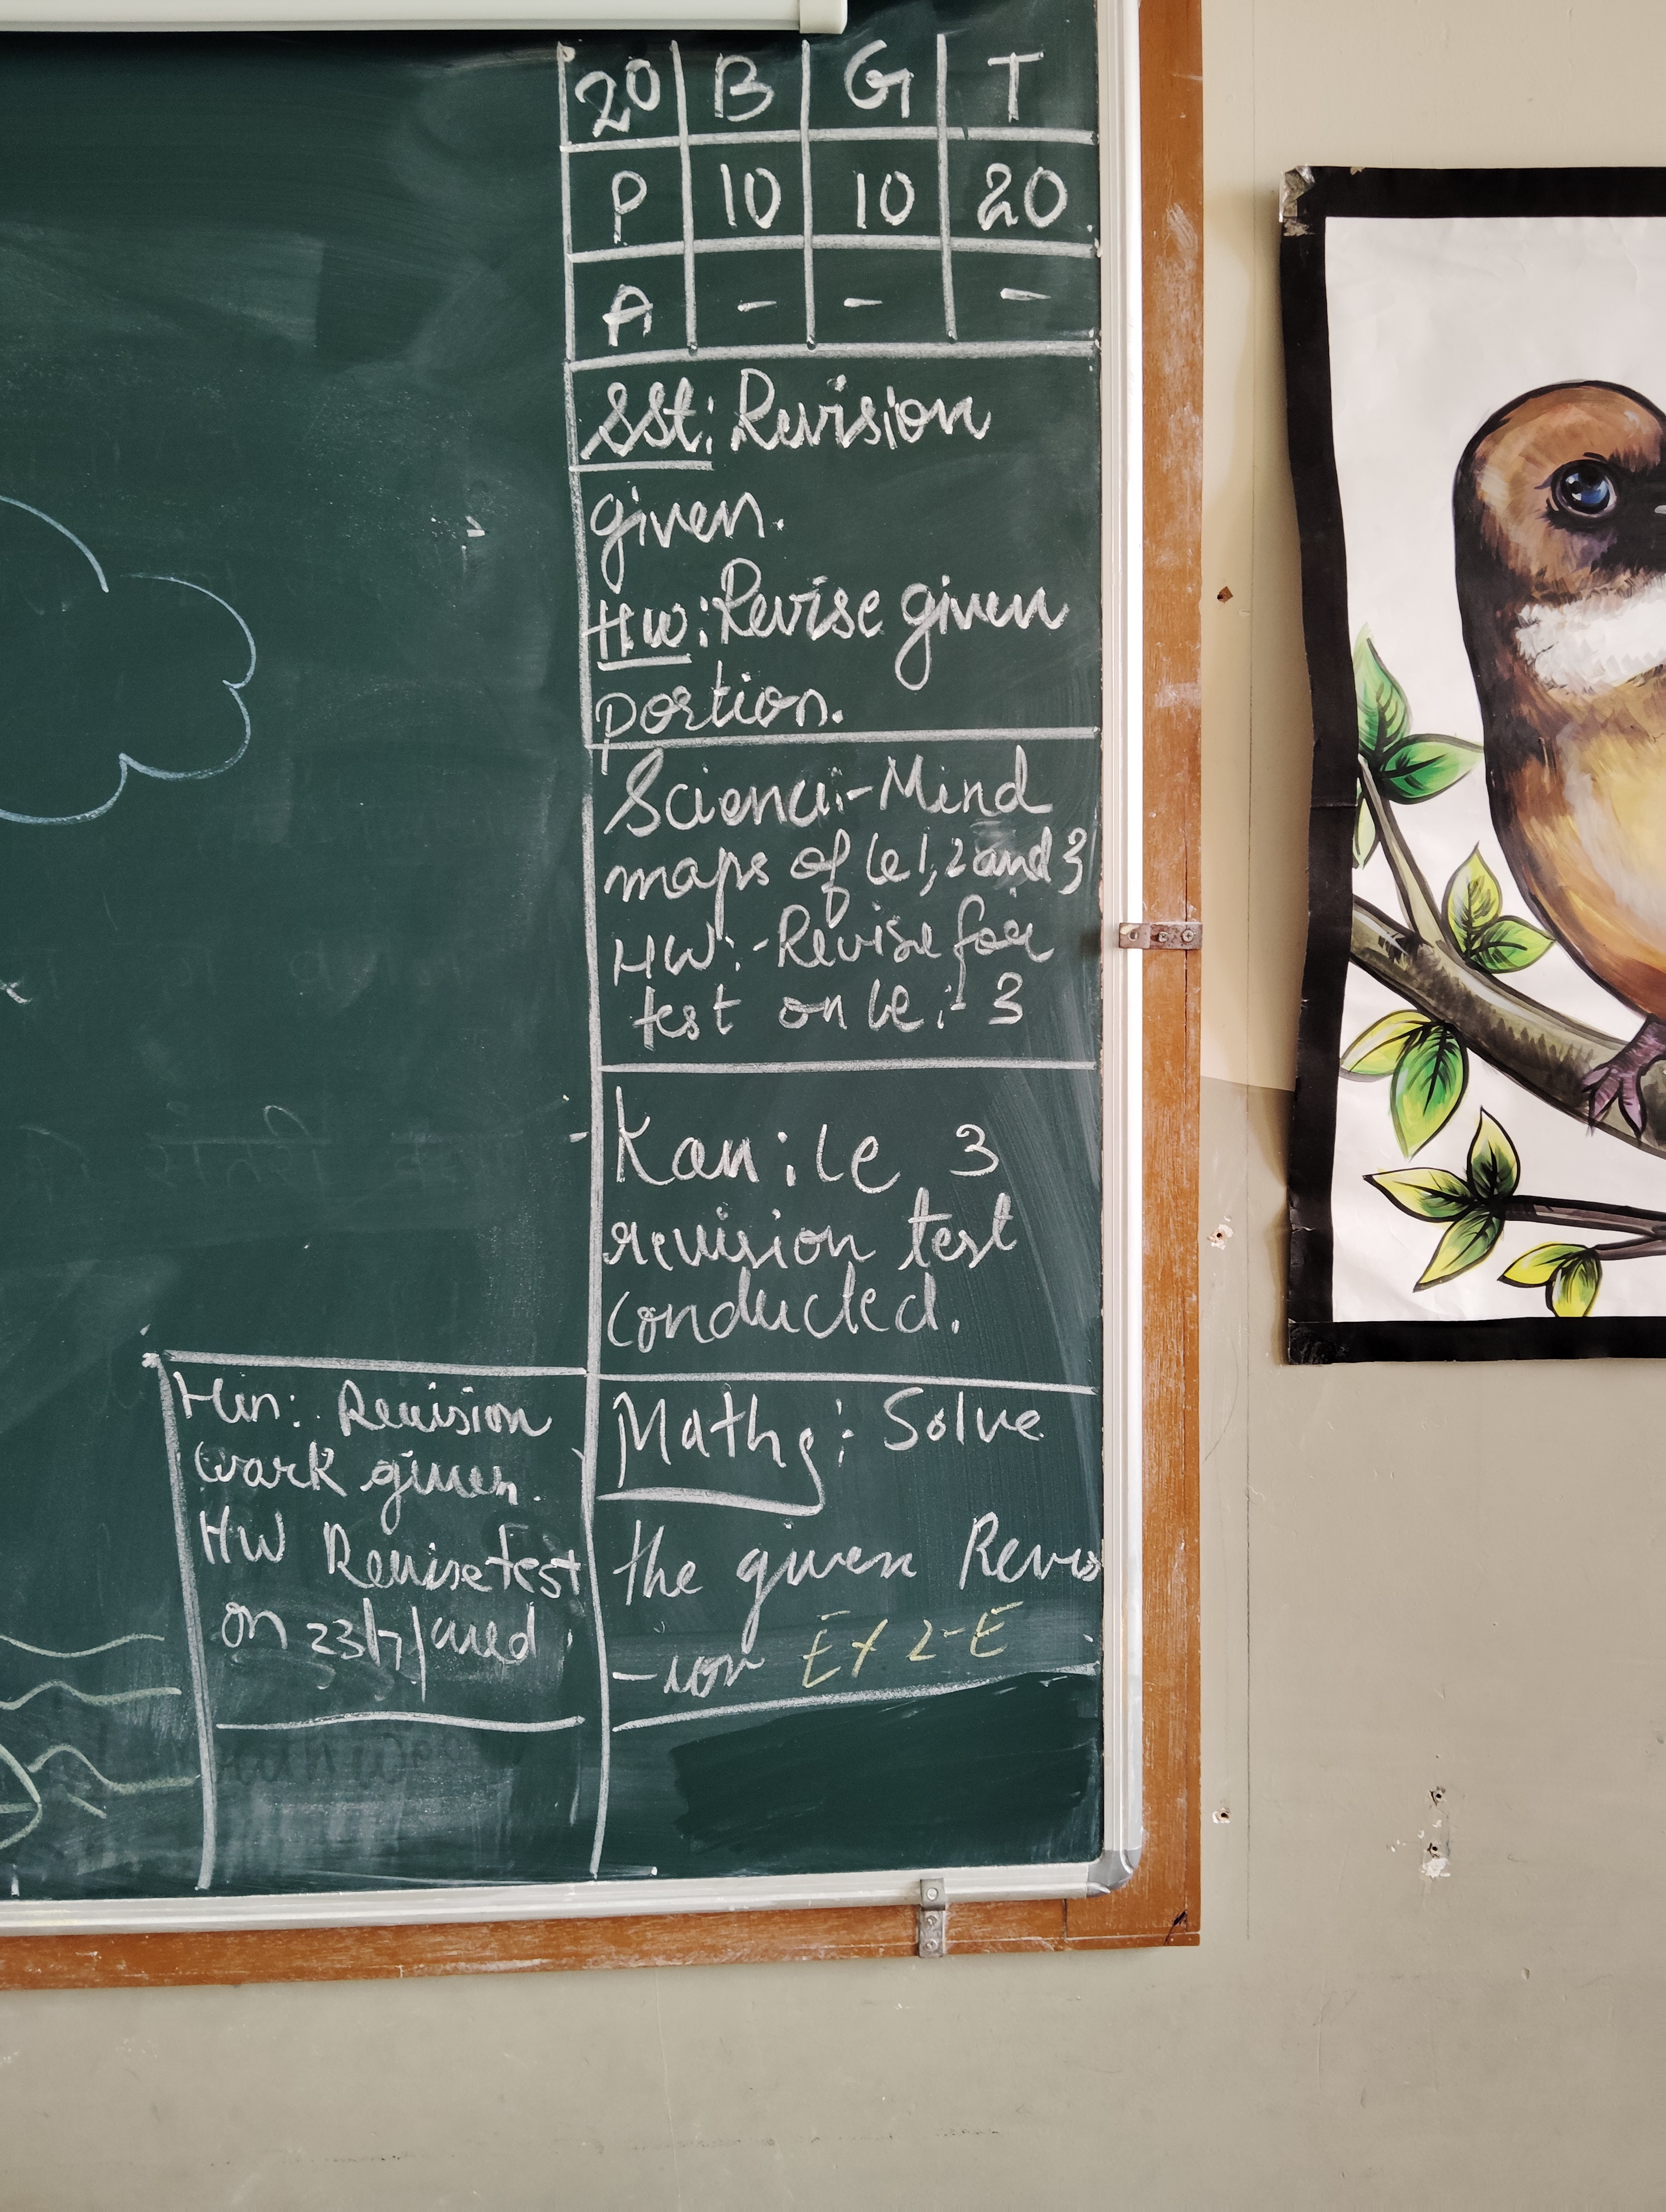 20 B G T
P 10 10 20
A - - -
SSt: Revision
given.
HW: Revise given
portion.
Science:-Mind
maps of le 1, 2 and 3
HW:-Revise for
test on le:-3
Kan: le 3
revision test
conducted.
Maths: Solve
the given Revis
-ion Ex 2-E
Hin: Revision
work given.
HW Revise test
on 23/7/wed.